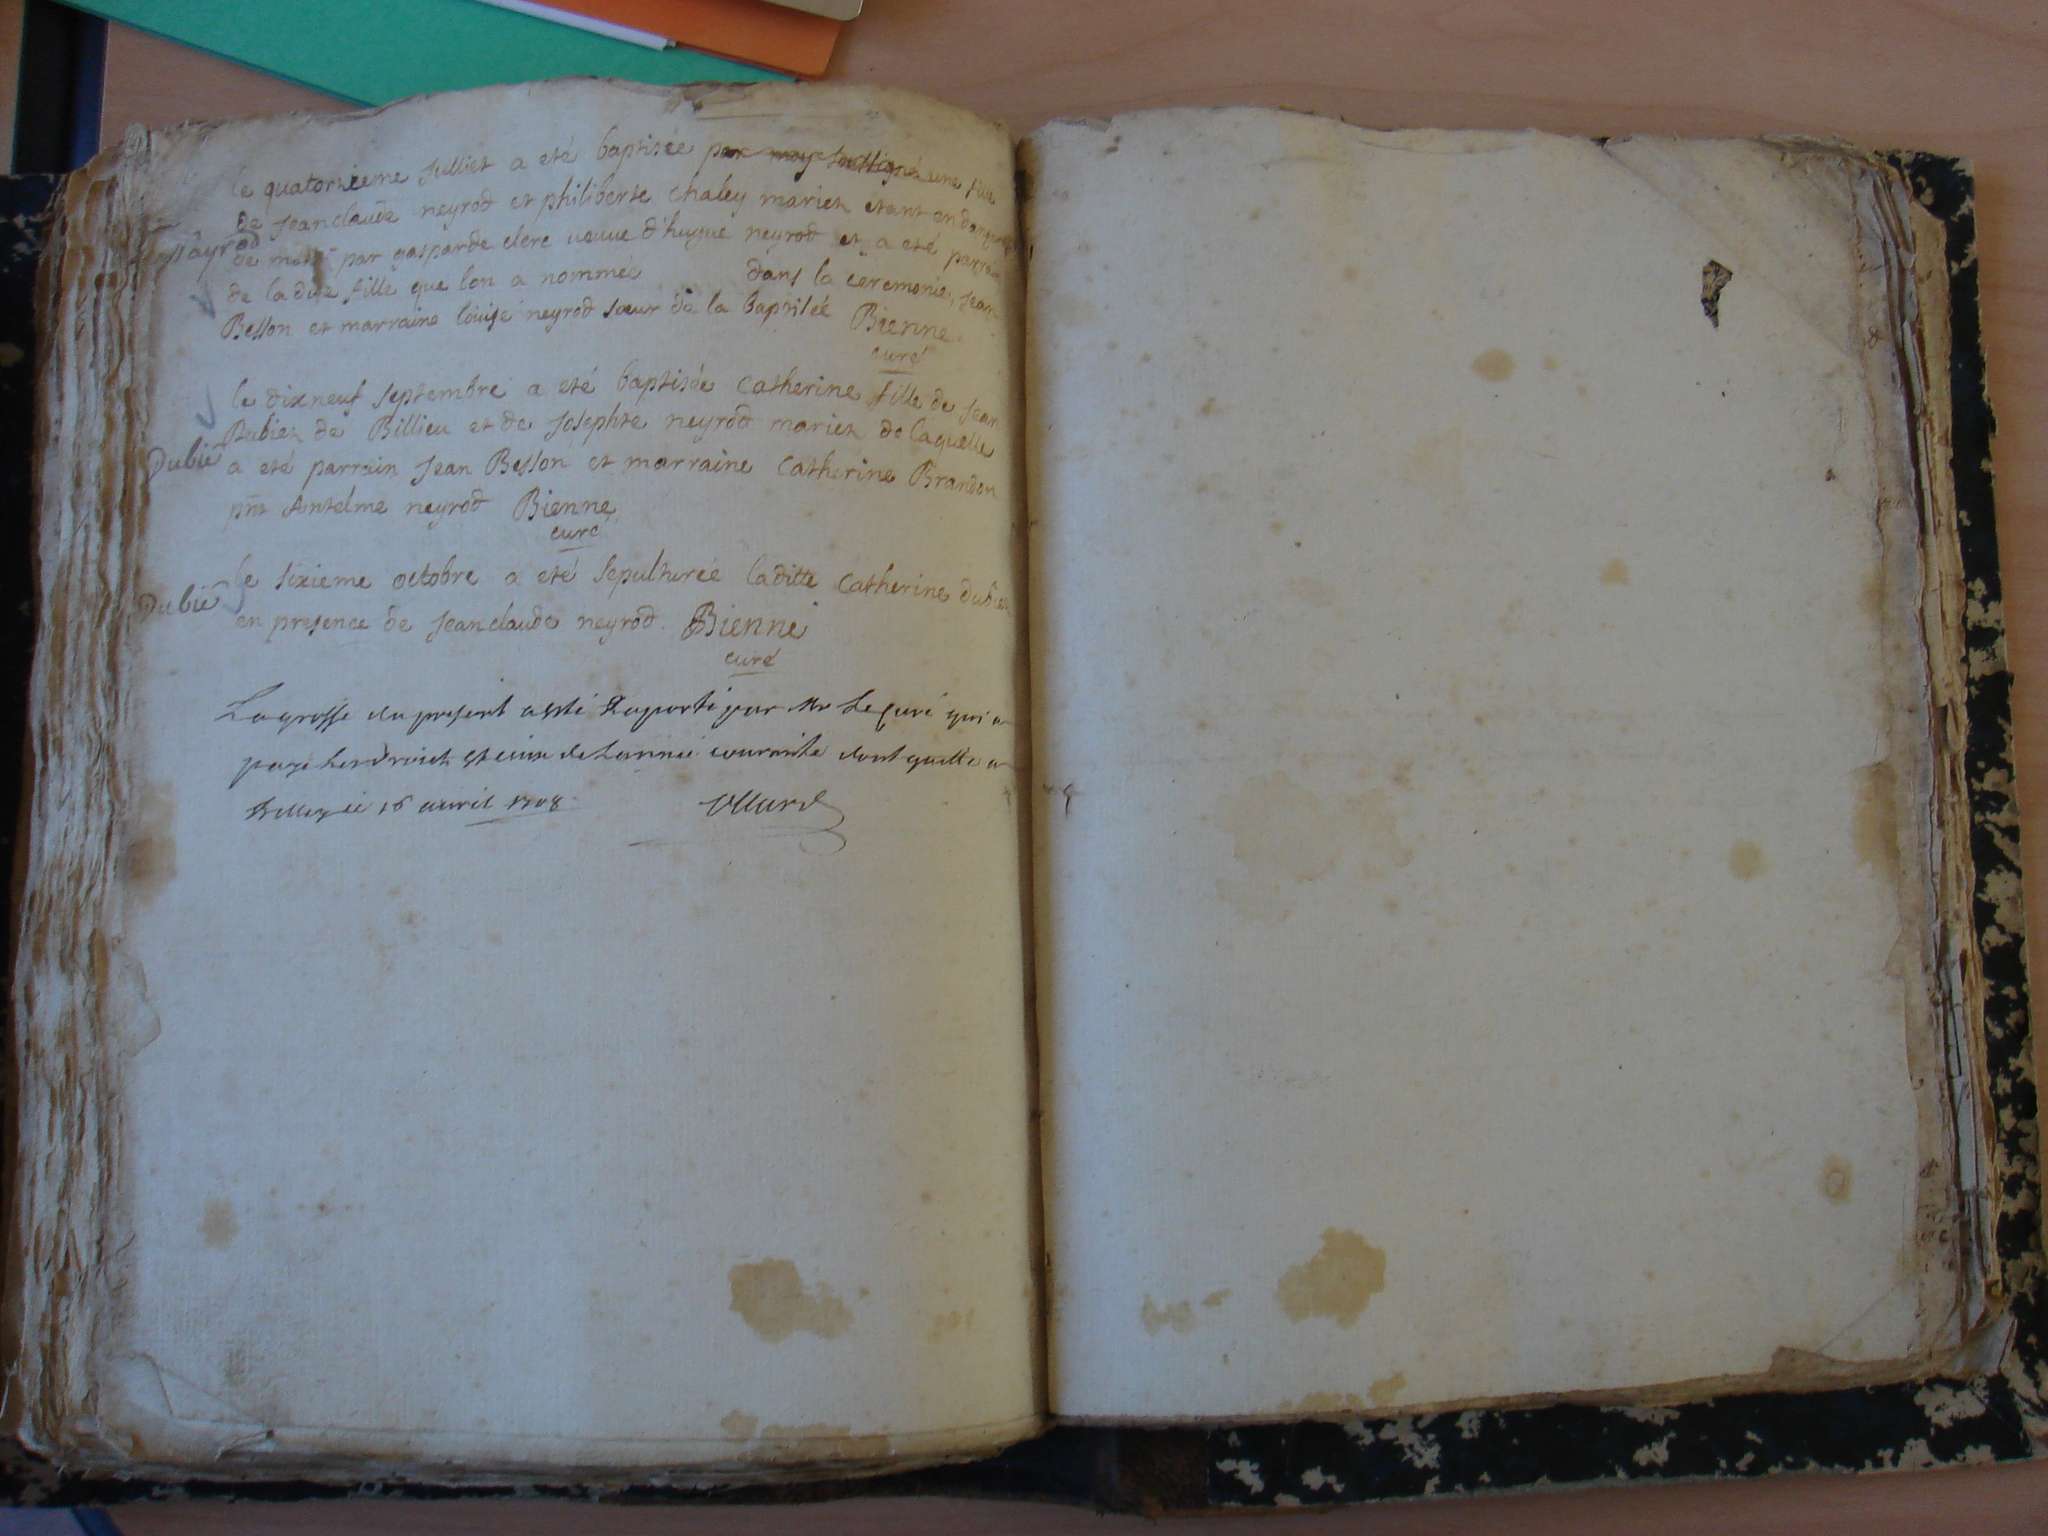 le quatorzieme Julliet a eté baptisée par moy soussigné une fille
de Jeanclaude neyrod et philiberte chaley mariez etant en danger
neyrod
de mort par gasparde clerc veuve d'hugue neyrod et a eté parrain
de la dite fille que lon a nommée dans la ceremonie, Jean
Besson et marraine louise neyrod sœur de la Baptisée Bienne
curé
le dixneuf septembre a eté baptisée Catherine fille de Jean
Dubiez de Billieu et de Josephte neyrod mariez de laquelle
Dubié
a eté parrain Jean Besson et marraine Catherine Brandon
pnt Antelme neyrod Bienne
curé
le sixieme octobre a eté sepulturée laditte Catherine dubiez
Dubié
en presence de Jeanclaude neyrod. Bienne
curé
La grosse du present a esté Raporté par Mr Le curé qui a
payé Les droicts et ceux de Lannée courante dont quitte a
Belley ce 16 avril 1708